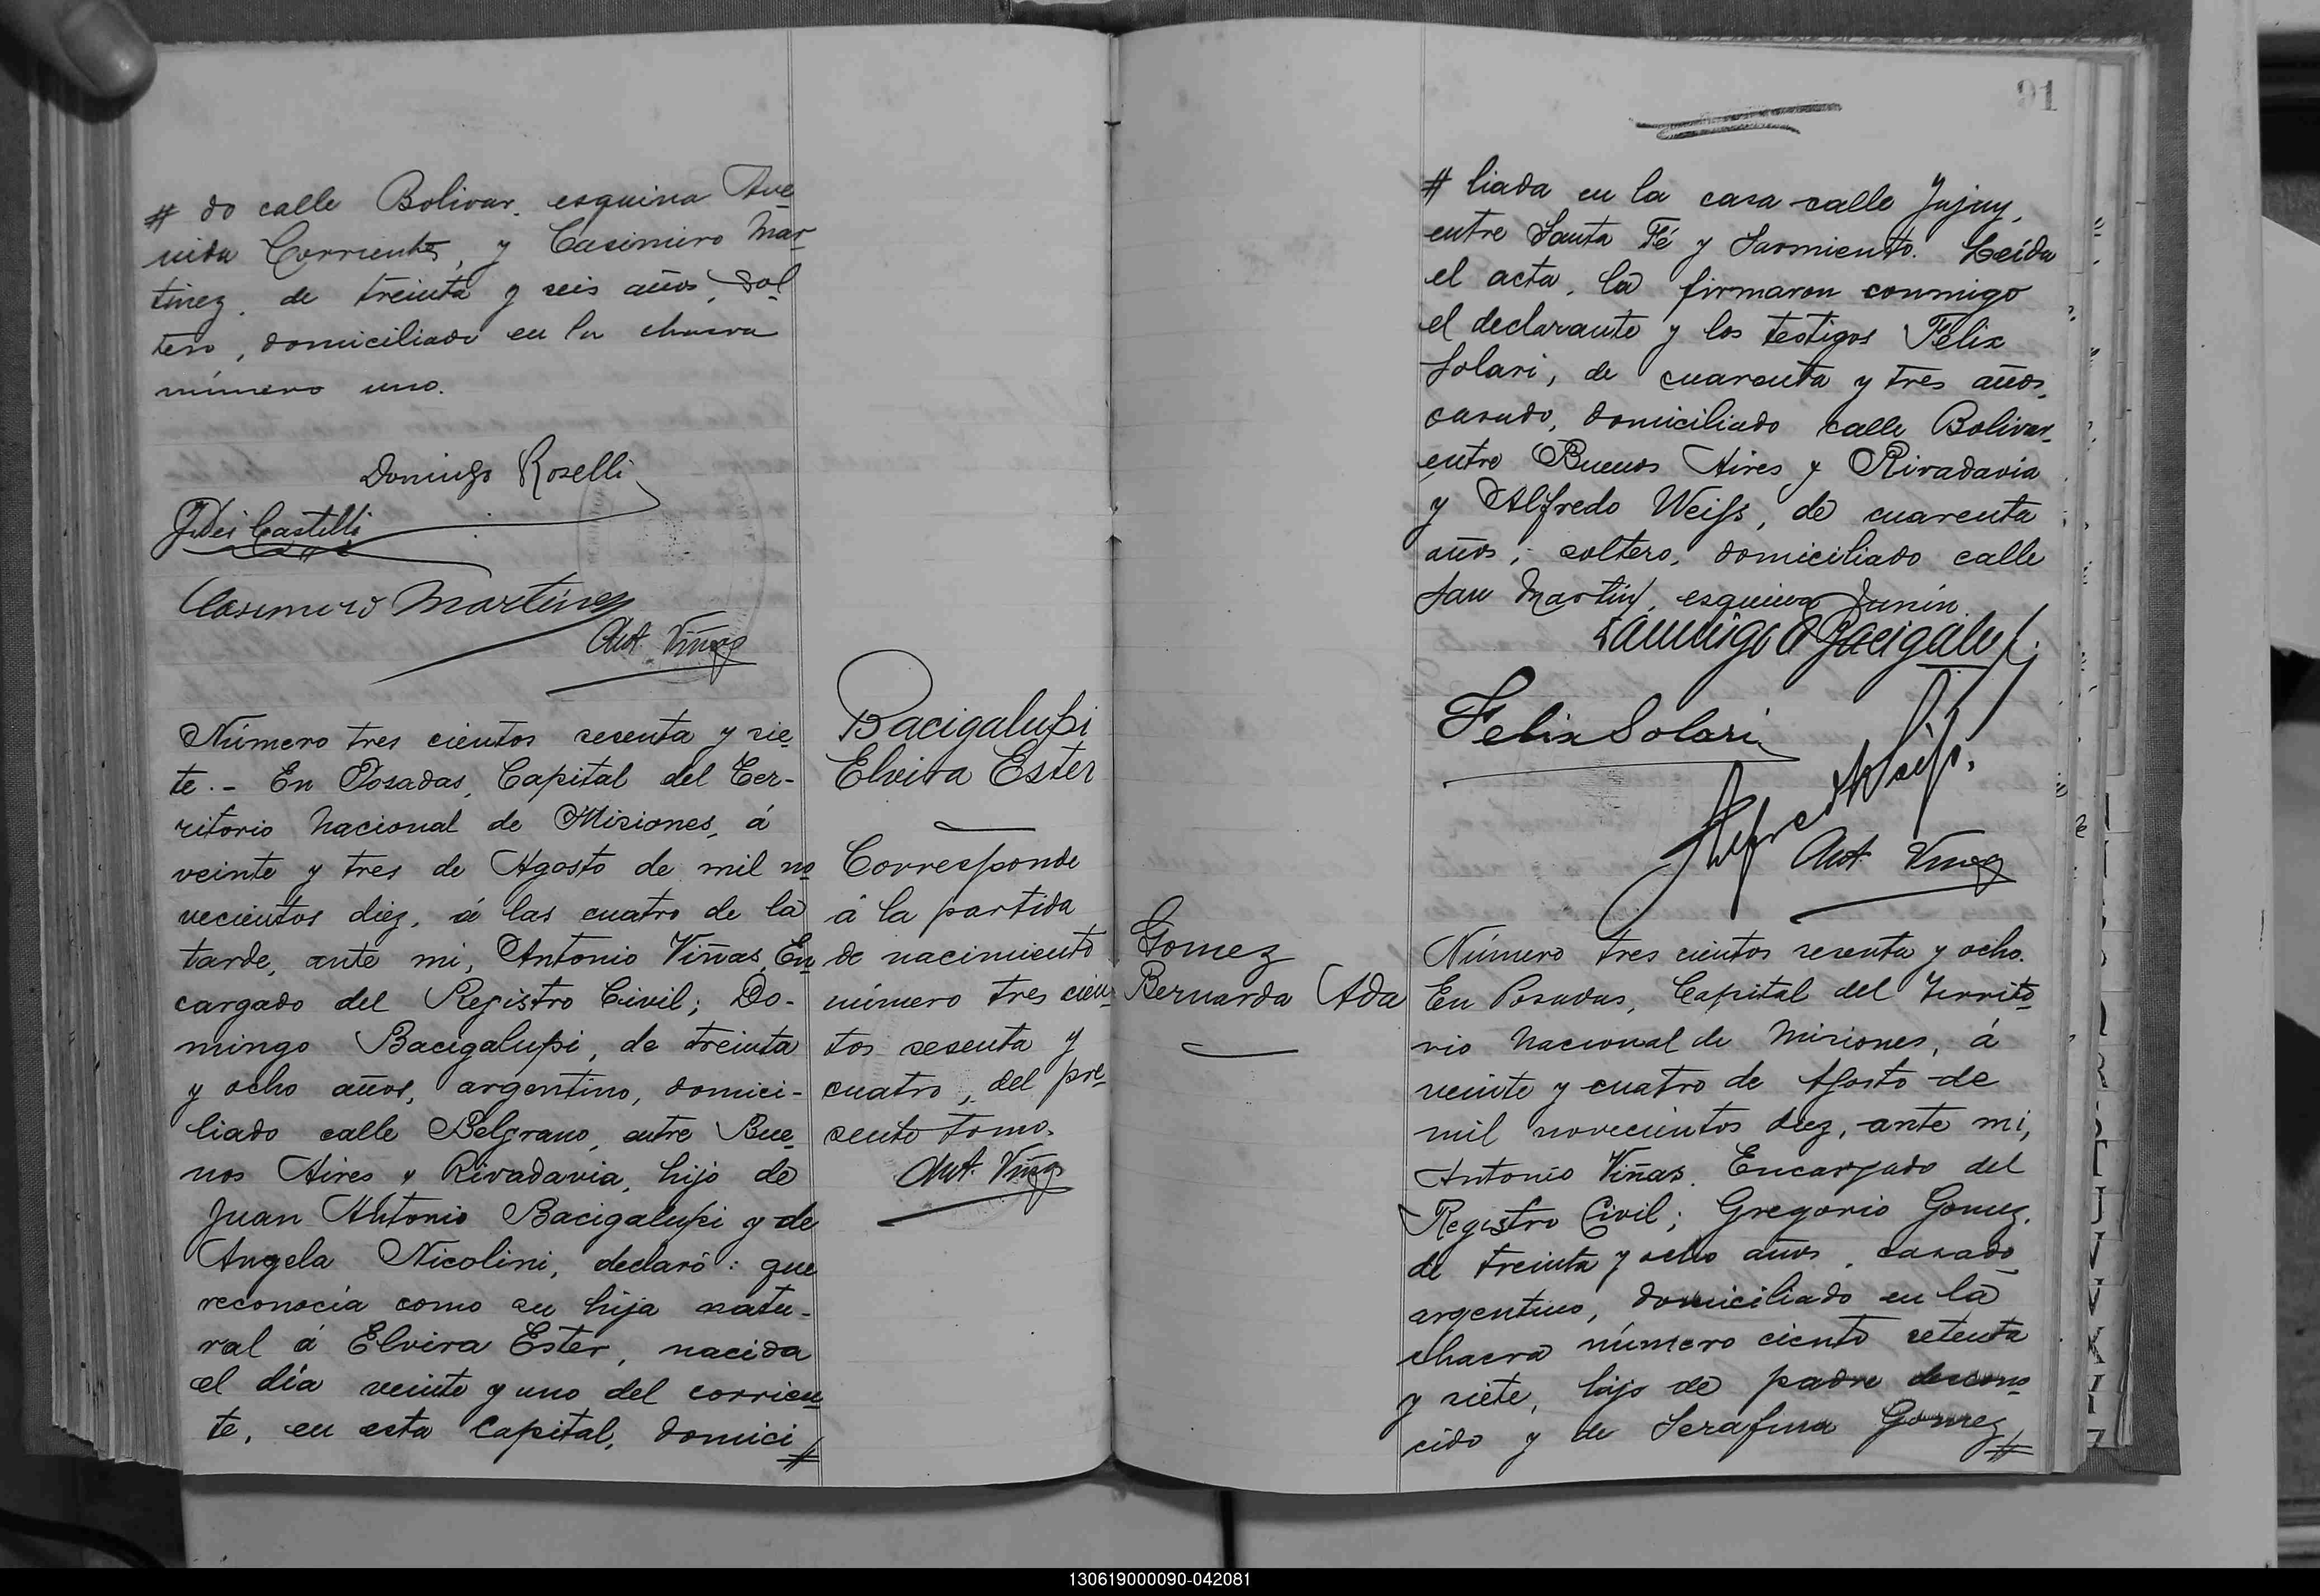 # do calle Bolivar, esquina Ave
nida Corrientes, y Casimiro Mar
tinez, de treinta y seis años, sol
tero, domiciliado en la chacra
número uno.
Domingo Roselli
Castelli
Casimiro Martinez
Ant. Viñas
Número tres cientos sesenta y sie
te. - En Posadas, Capital del Ter-
ritorio Nacional de Misiones, á
veinte y tres de Agosto de mil no
vecientos diez, á las cuatro de la
tarde, ante mi, Antonio Viñas, En
cargado del Registro Civil; Do-
mingo Bacigalupi, de treinta
y ocho años, argentino, domici-
liado calle Belgrano, entre Bue
nos Aires y Rivadavia, hijo de
Juan Antonio Bacigalupi y de
Angela Nicolini, declaró: que
reconocía como su hija natu-
ral á Elvira Ester, nacida
el día veinte y uno del corrien
te, en esta Capital, domici #
Bacigalupi
Elveira Ester
Corresponde
á la partida
de nacimiento
número tres cien
tos sesenta y
cuatro, del pre
sente tomo.
Ant. Viñas
91
Gomez
Bernarda Ada
# liada en la casa calle Jujuy,
entre Santa Fé y Sarmiento. Leída
el acta, la firmaron conmigo
el declarante y los testigos Felix
Solari, de cuarenta y tres años,
casado, domiciliado calle Bolivar,
entre Buenos Aires y Rivadavia
y Alfredo Weiss, de cuarenta
años, soltero, domiciliado calle
San Martin, esquina Junin.
Domingo Bacigalupi
Felix Solari
Alfredo Weiss.
Ant Viñas
Número tres cientos sesenta y ocho.
En Posadas, Capital del Territo
rio Nacional de Misiones, á
veinte y cuatro de Agosto de
mil novecientos diez, ante mi,
Antonio Viñas, Encargado del
Registro Civil; Gregorio Gomez,
de treinta y ocho años, casado,
argentino, domiciliado en la
chacra número ciento setenta
y siete, hijo de padre descono
cido y de Serafina Gomez #
130619000090-042081